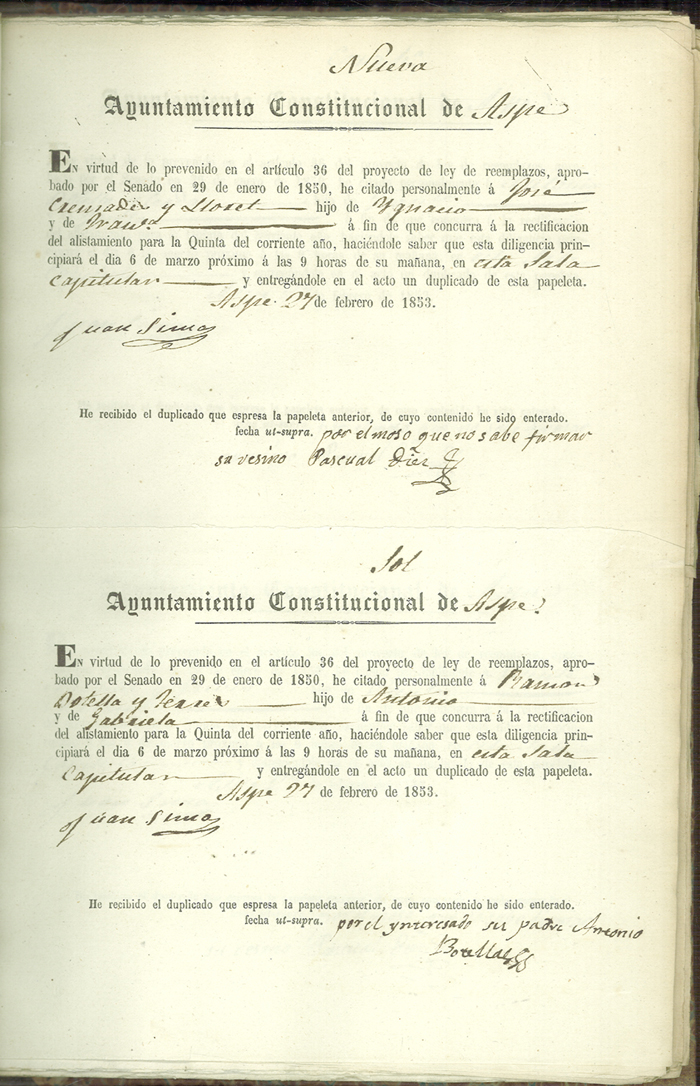 Nueva
Ayuntamiento Constitucional de Aspe
EN virtud de lo prevenido en el artículo 36 del proyecto de ley de reemplazos, apro-
bado por el Senado en 29 de enero de 1850, he citado personalmente á José
Cremades y Lloret hijo de Ygnacio
y de Franca á fin de que concurra á la rectificacion
del alistamiento para la Quinta del corriente año, haciéndole saber que esta diligencia prin-
cipiará el dia 6 de marzo próximo á las 9 horas de su mañana, en esta Sala
Capitular y entregándole en el acto un duplicado de esta papeleta.
Aspe 27 de febrero de 1853.
Juan Simo
He recibido el duplicado que espresa la papeleta anterior, de cuyo contenido he sido enterado.
fecha ut-supra. por el moso que no sabe firmar
su vesino Pascual Diez
Sol
Ayuntamiento Constitucional de Aspe.
EN virtud de lo prevenido en el artículo 36 del proyecto de ley de reemplazos, apro-
bado por el Senado en 29 de enero de 1850, he citado personalmente á Ramon
Botella y hijo de Antonio
y de Gabriela á fin de que concurra á la rectificacion
del alistamiento para la Quinta del corriente año, haciéndole saber que esta diligencia prin-
cipiará el dia 6 de marzo próximo á las 9 horas de su mañana, en esta Sala
Capitular y entregándole en el acto un duplicado de esta papeleta.
Aspe 27 de febrero de 1853.
Juan Simo
He recibido el duplicado que espresa la papeleta anterior, de cuyo contenido he sido enterado.
fecha ut-supra. por el ynteresado su padre Antonio
Botella